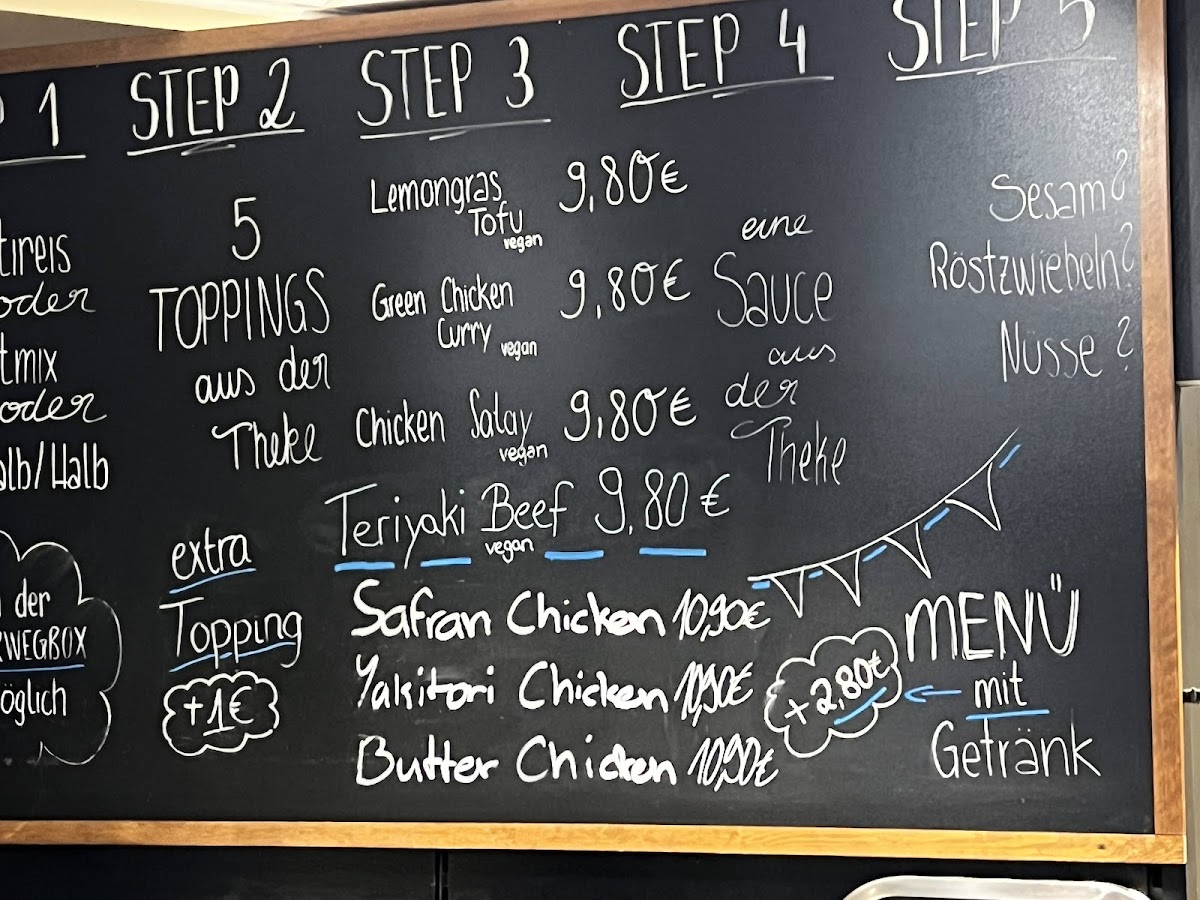 P 1
tireis
oder
tmix
oder
alb/Halb
der
RWEGBOX
öglich
STEP 2
5
TOPPINGS
aus der
Theke
extra
Topping
+1€
STEP 3
Lemongras 9,80€
Tofu
vegan
Green Chicken 9,80€
Curry vegan
Chicken Satay 9,80€
vegan
Teriyaki Beef 9,80€
vegan
Safran Chicken 10,90€
Yakitori Chicken 10,90€
Butter Chicken 10,90€
STEP 4
eine
Sauce
aus
der
Theke
STEP 5
Sesam?
Röstzwiebeln?
Nüsse?
MENÜ
+2,80€ ← mit
Getränk